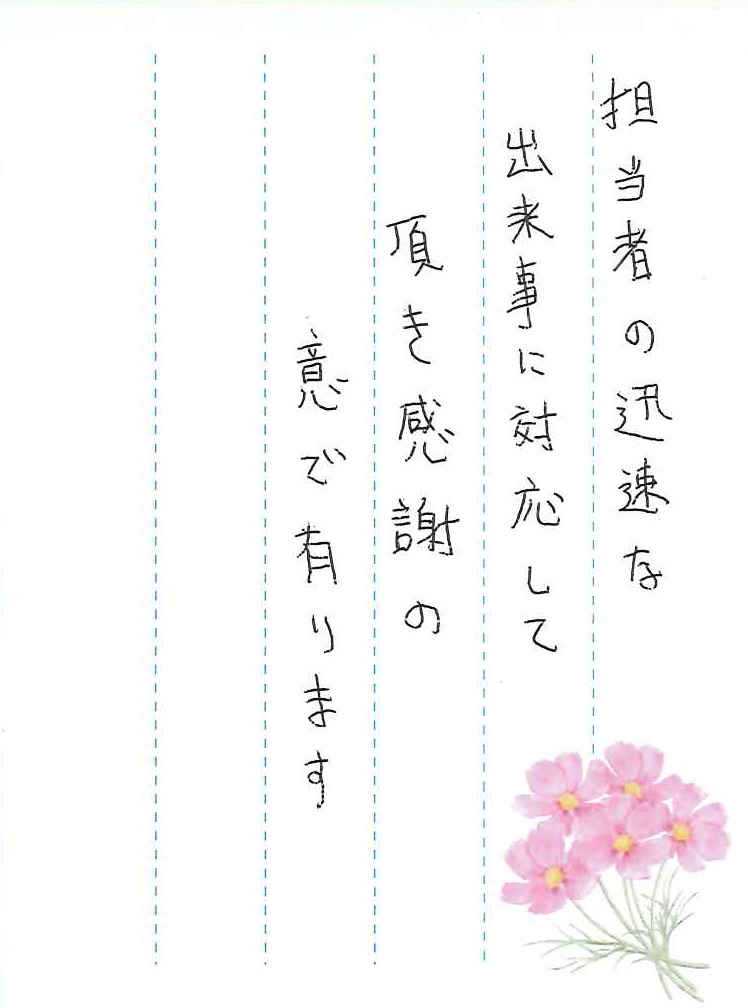 担当者の迅速な
出来事に対応して
頂き感謝の
意で有ります